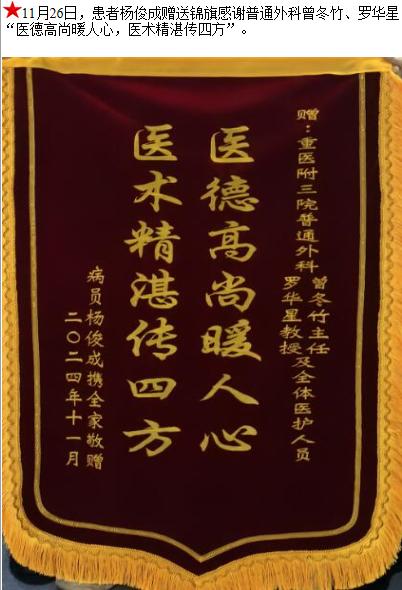 ★11月26日，患者杨俊成赠送锦旗感谢普通外科曾冬竹、罗华星
“医德高尚暖人心，医术精湛传四方”。
赠：重医附三院普通外科
曾冬竹主任
罗华星教授
及全体医护人员
医德高尚暖人心
医术精湛传四方
病员杨俊成携全家敬赠
二〇二四年十一月